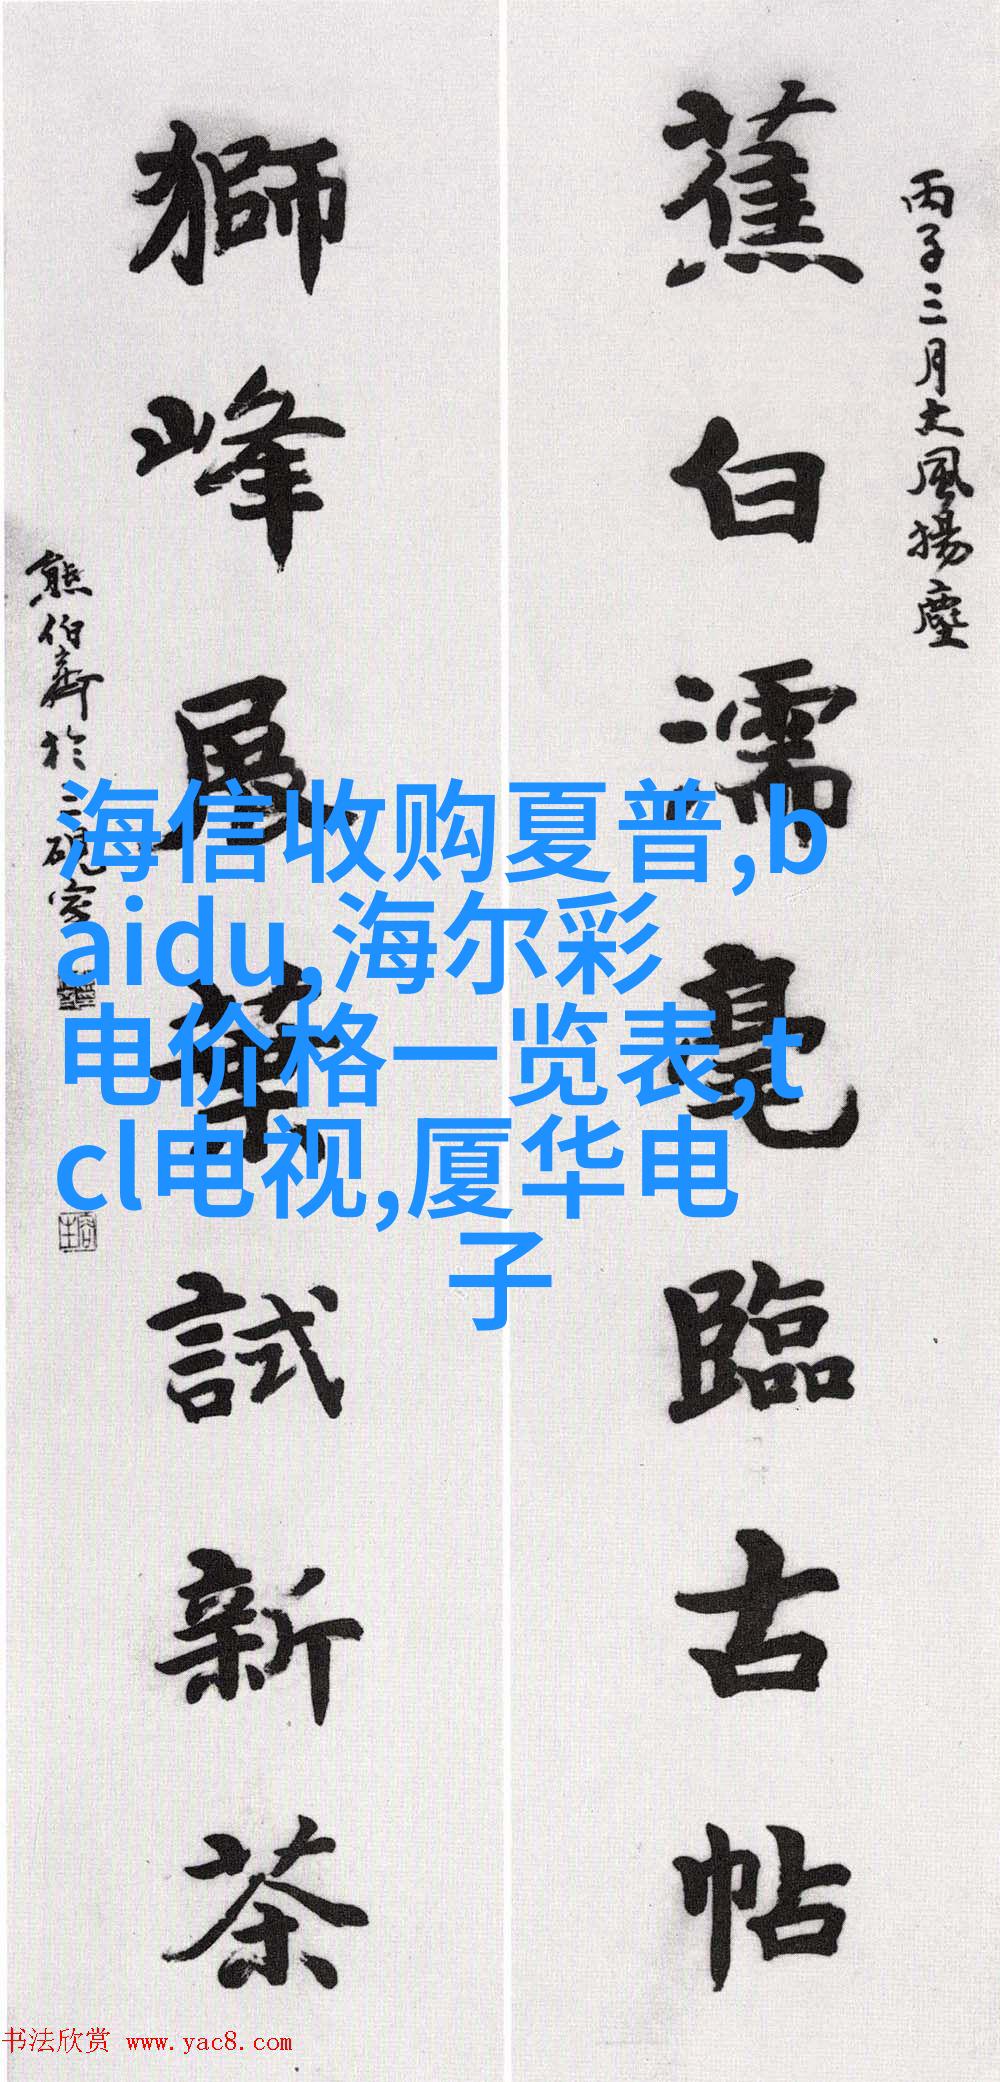 丙子三月大風揚塵
蕉白濡毫臨古帖
獅峰葉試新茶
熊伯齊於硯
海信收购夏普,b
aidu,海尔彩
电价格一览表,t
cl电视,厦华电
子
书法欣赏 www.yac8.com